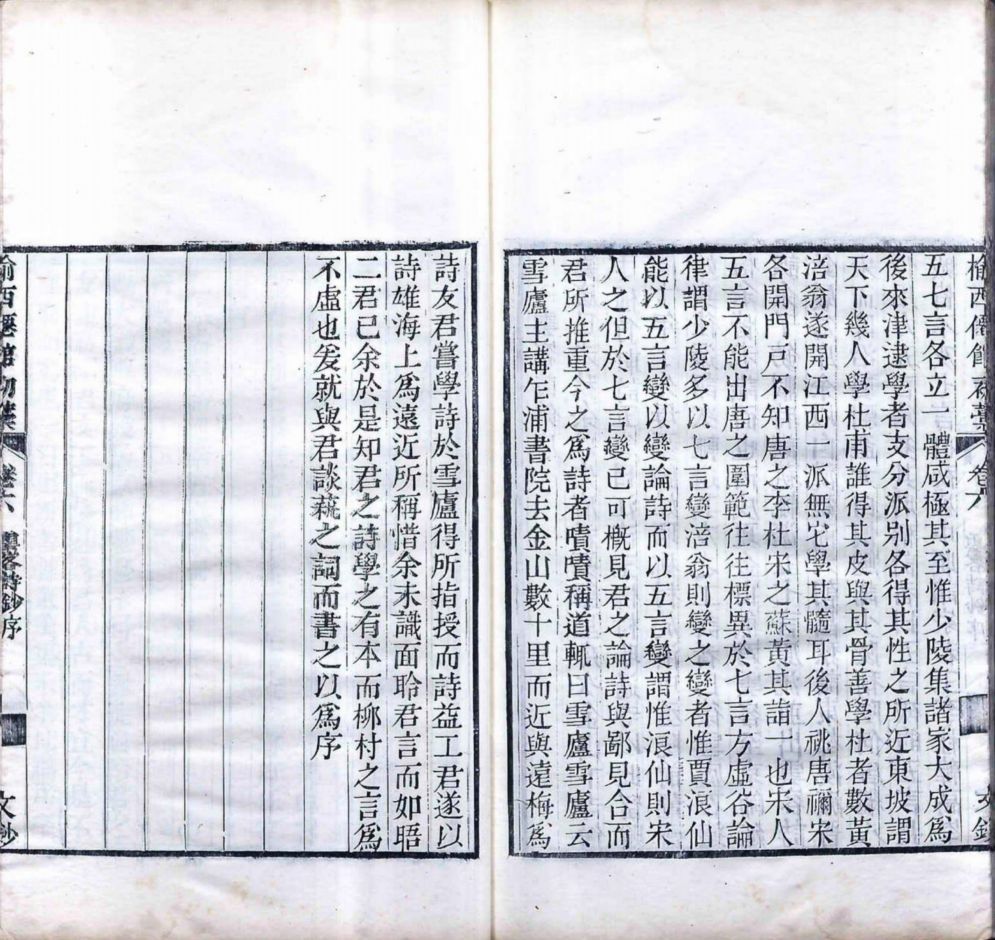 榆西僊館初藁 卷六
五七言各立一體咸極其至惟少陵集諸家大成爲
後來津逮學者支分派別各得其性之所近東坡謂
天下幾人學杜甫誰得其皮與其骨善學杜者數黃
涪翁遂開江西一派無它學其髓耳後人祧唐禰宋
各開門戶不知唐之李杜宋之蘇黃其詣一也宋人
五言不能出唐之圍範往往標異於七言方虛谷論
律謂少陵多以七言變涪翁則變之變者惟賈浪仙
能以五言變以變論詩而以五言變謂惟浪仙則宋
人之但於七言變已可概見君之論詩與鄙見合而
君所推重今之爲詩者嘖嘖稱道輒曰雪廬雪廬云
雪廬主講乍浦書院去金山數十里而近與遠梅爲
詩友君嘗學詩於雪廬得所指授而詩益工君遂以
詩雄海上爲遠近所稱惜余未識面聆君言而如晤
二君已余於是知君之詩學之有本而柳村之言爲
不虛也爰就與君談蓺之詞而書之以爲序
榆西僊館初藁 卷六 詩鈔序 文鈔